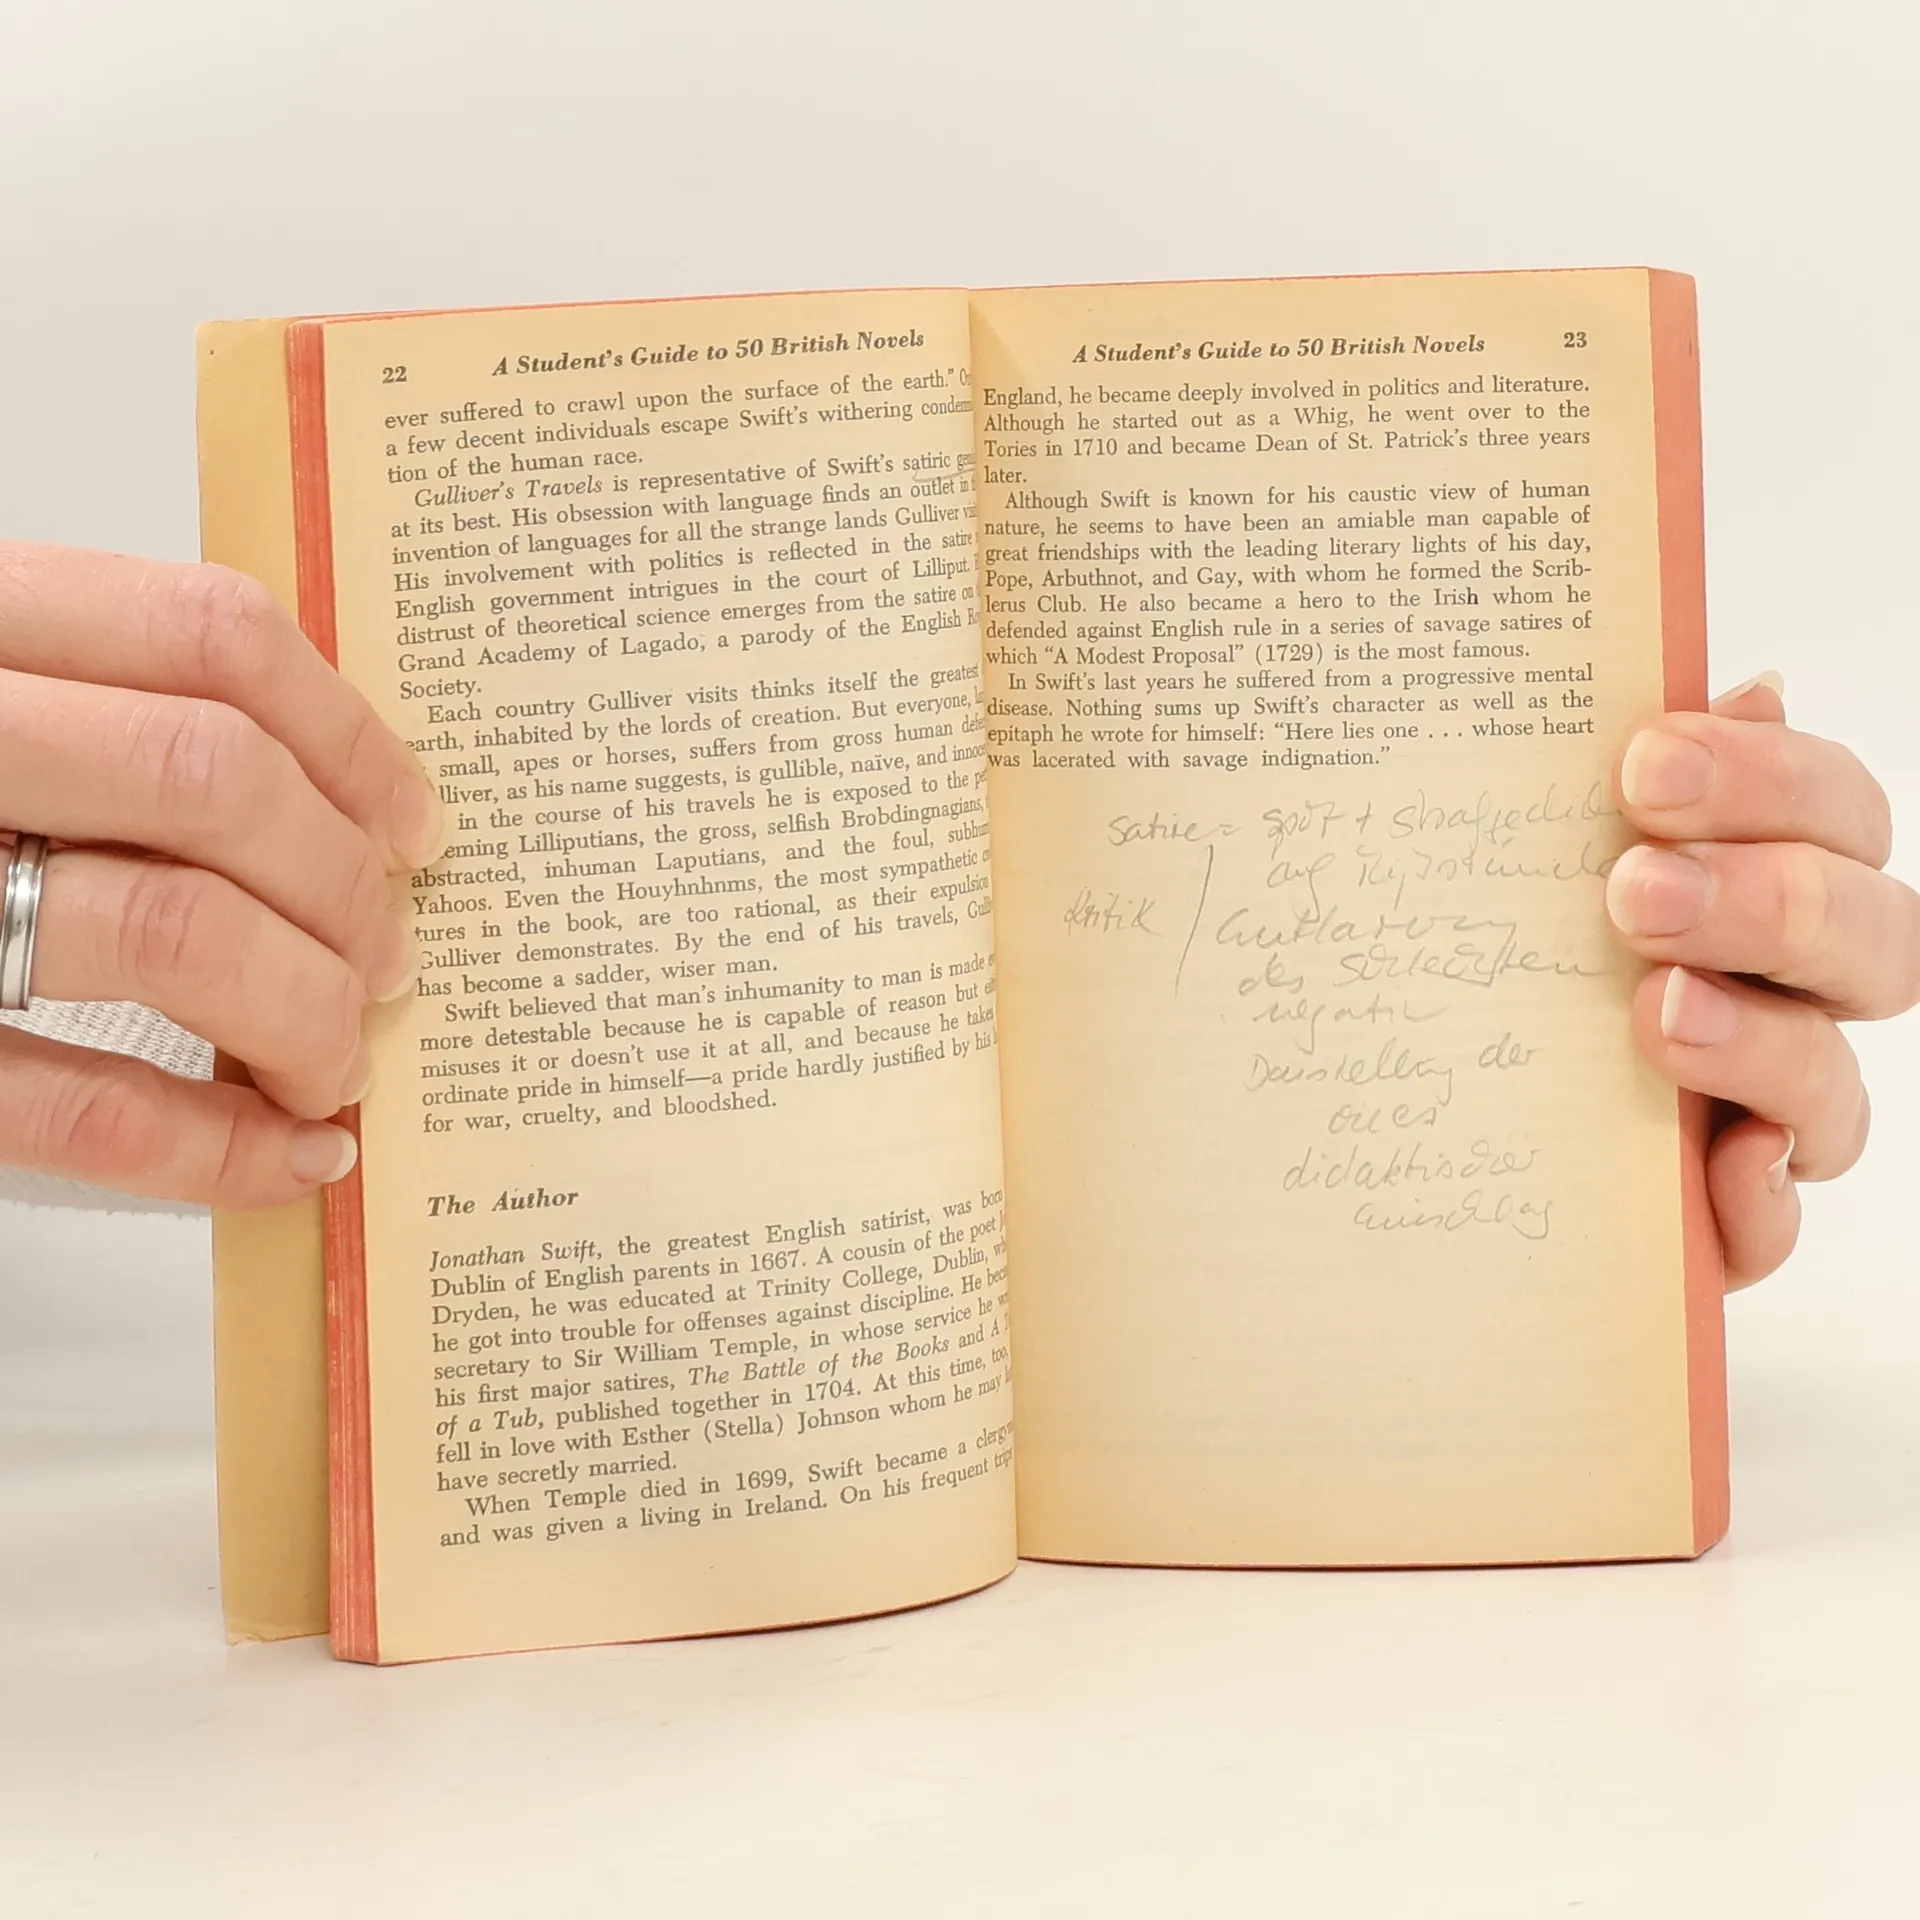 22 A Student's Guide to 50 British Novels
ever suffered to crawl upon the surface of the earth."
a few decent individuals escape Swift's withering condem
tion of the human race.
Gulliver's Travels is representative of Swift's satiric
at its best. His obsession with language finds an outlet in
invention of languages for all the strange lands Gulliver
His involvement with politics is reflected in the satire
English government intrigues in the court of Lilliput.
distrust of theoretical science emerges from the satire on
Grand Academy of Lagado, a parody of the English
Society.
Each country Gulliver visits thinks itself the greatest
earth, inhabited by the lords of creation. But everyone,
small, apes or horses, suffers from gross human
lliver, as his name suggests, is gullible, naïve, and
in the course of his travels he is exposed to the
eming Lilliputians, the gross, selfish Brobdingnagians,
abstracted, inhuman Laputians, and the foul,
Yahoos. Even the Houyhnhnms, the most sympathetic
tures in the book, are too rational, as their expulsion
Gulliver demonstrates. By the end of his travels,
has become a sadder, wiser man.
Swift believed that man's inhumanity to man is made
more detestable because he is capable of reason but
misuses it or doesn't use it at all, and because he takes
ordinate pride in himself—a pride hardly justified by his
for war, cruelty, and bloodshed.
The Author
Jonathan Swift, the greatest English satirist, was born
Dublin of English parents in 1667. A cousin of the poet
Dryden, he was educated at Trinity College, Dublin,
he got into trouble for offenses against discipline. He
secretary to Sir William Temple, in whose service he
his first major satires, The Battle of the Books and A
of a Tub, published together in 1704. At this time, too,
fell in love with Esther (Stella) Johnson whom he may
have secretly married.
When Temple died in 1699, Swift became a
and was given a living in Ireland. On his frequent
A Student's Guide to 50 British Novels 23
England, he became deeply involved in politics and literature.
Although he started out as a Whig, he went over to the
Tories in 1710 and became Dean of St. Patrick's three years
later.
Although Swift is known for his caustic view of human
nature, he seems to have been an amiable man capable of
great friendships with the leading literary lights of his day,
Pope, Arbuthnot, and Gay, with whom he formed the Scrib-
lerus Club. He also became a hero to the Irish whom he
defended against English rule in a series of savage satires of
which "A Modest Proposal" (1729) is the most famous.
In Swift's last years he suffered from a progressive mental
disease. Nothing sums up Swift's character as well as the
epitaph he wrote for himself: "Here lies one . . . whose heart
was lacerated with savage indignation."
Satire = Spott +
auf
Kritik Entlarvung
des Schlechten
negativ
Darstellung der
didaktischer
Einschlag